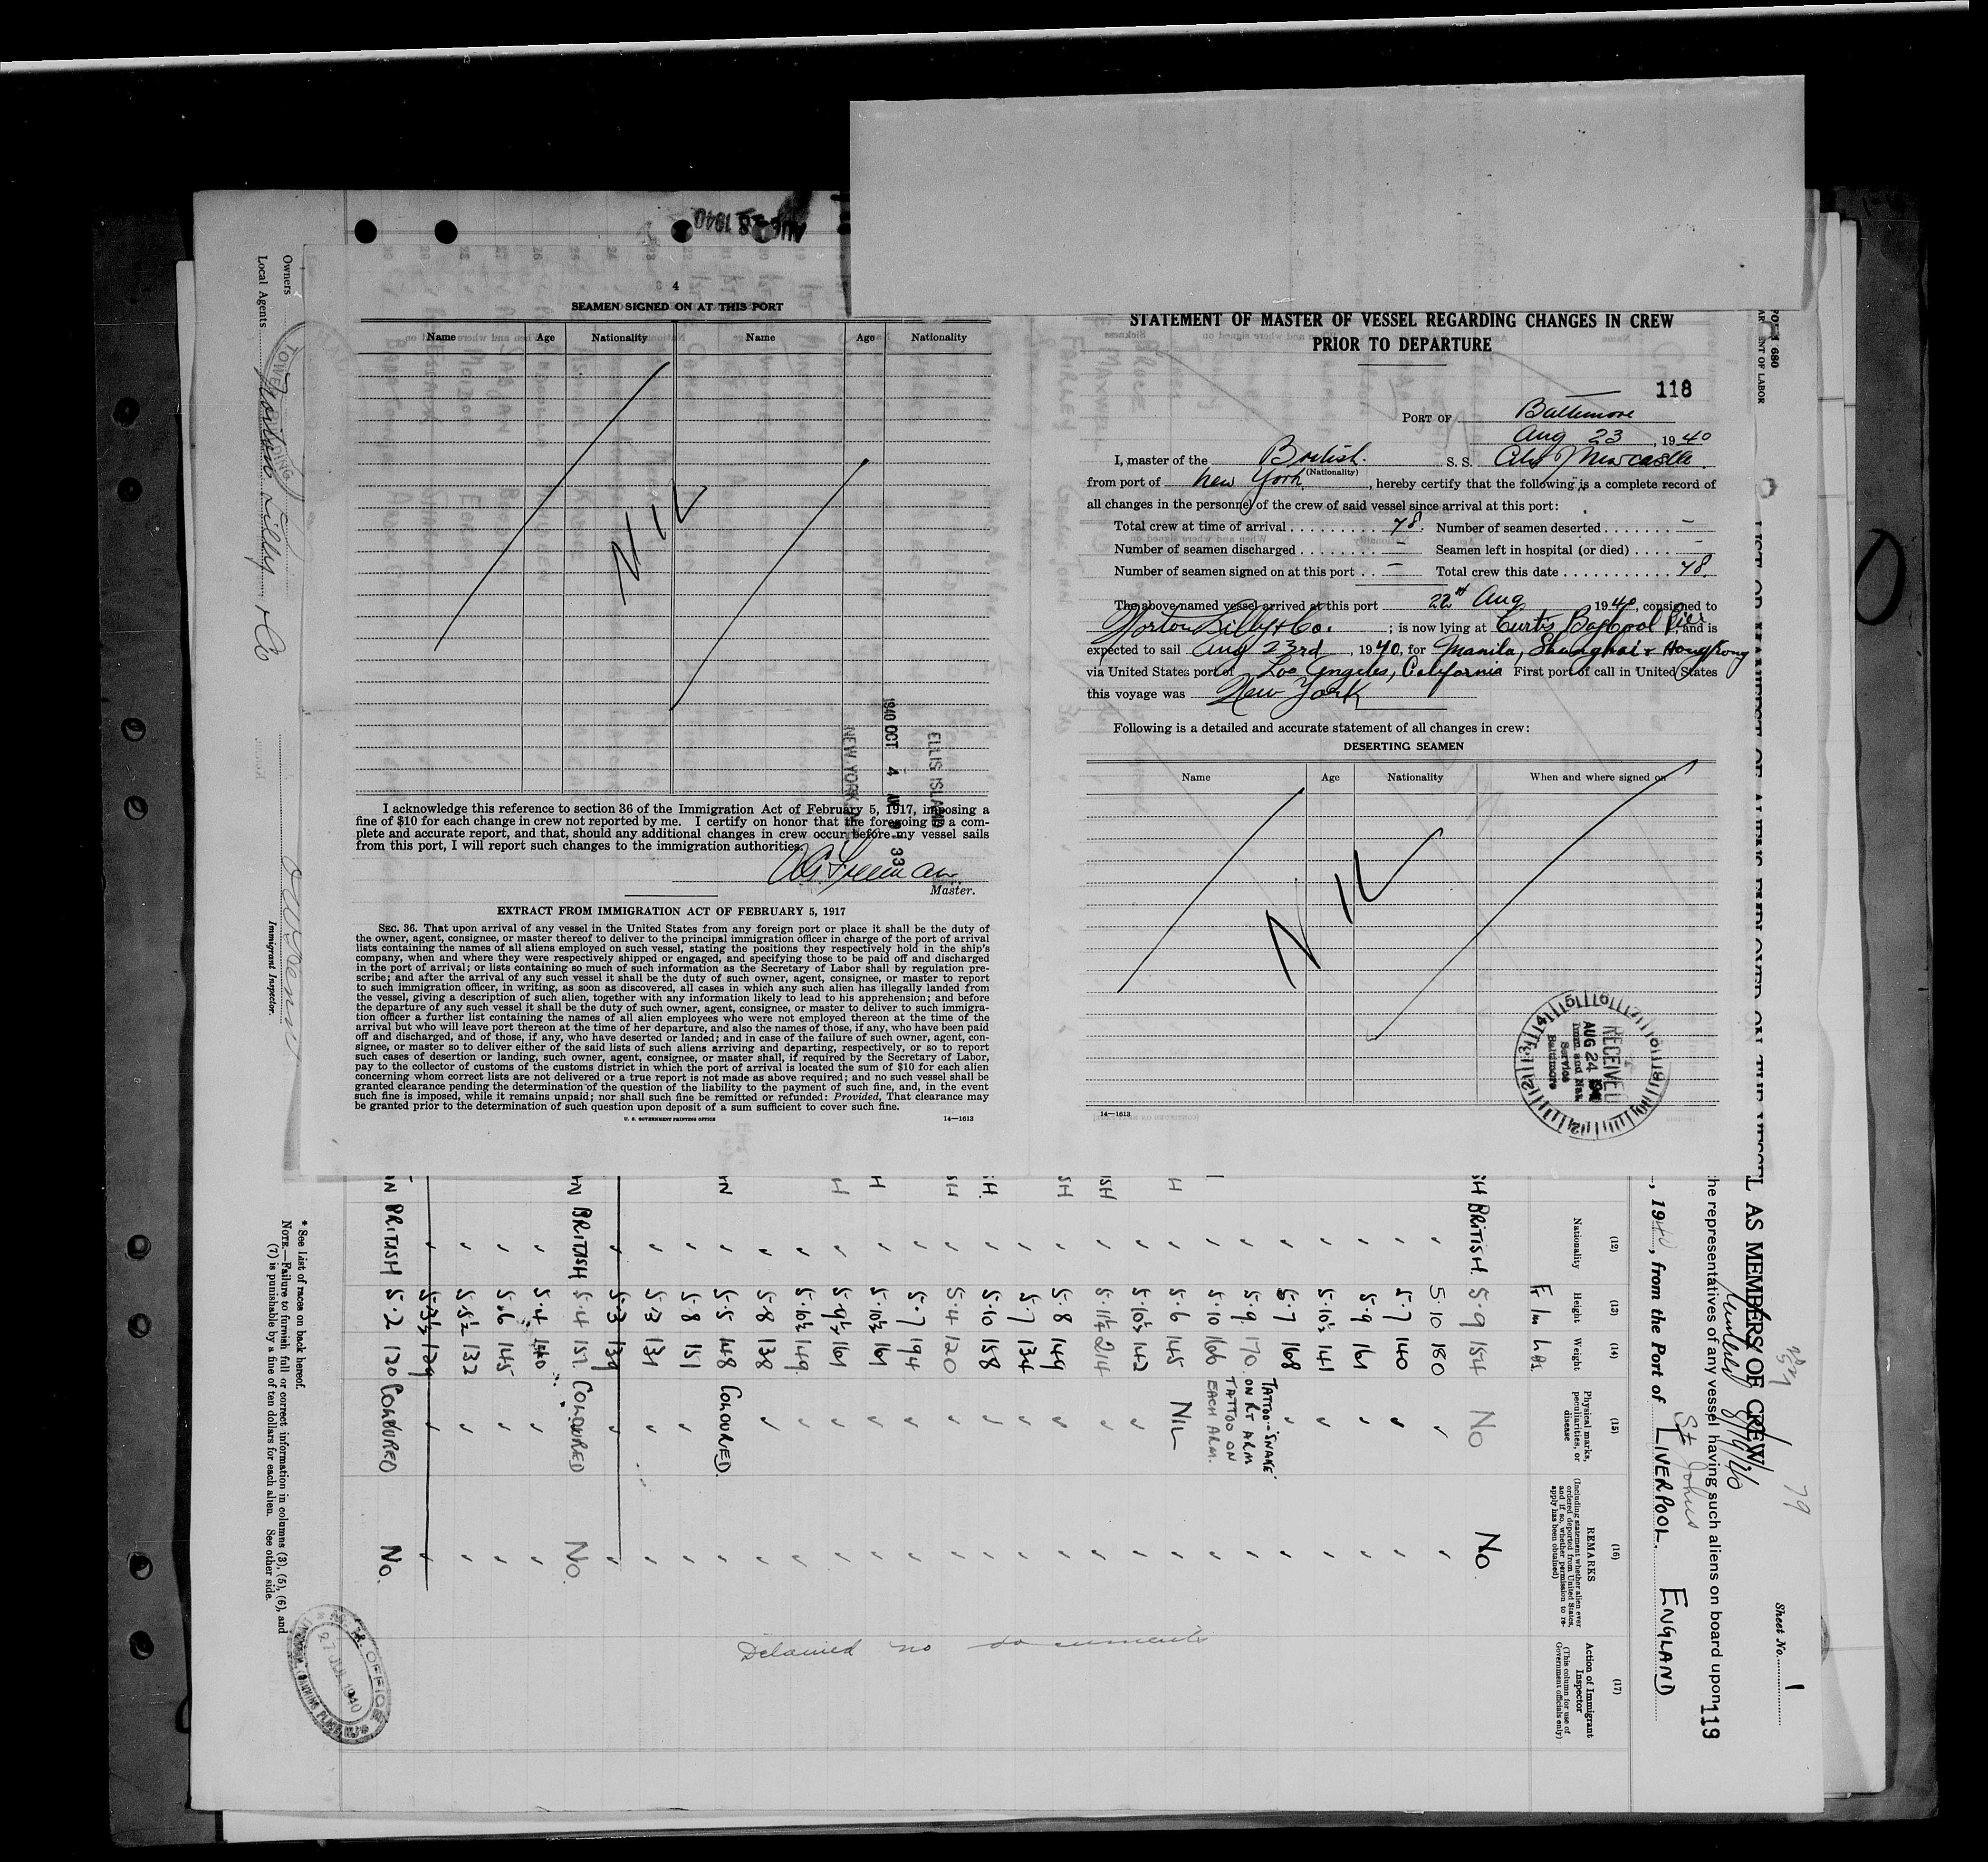 AUG 28 1940
4
SEAMEN SIGNED ON AT THIS PORT
Name Age Nationality Name Age Nationality
NIL
ELLIS ISLAND
1940 OCT 4 AM 9 33
NEW YORK
I acknowledge this reference to section 36 of the Immigration Act of February 5, 1917, imposing a
fine of $10 for each change in crew not reported by me. I certify on honor that the foregoing is a com-
plete and accurate report, and that, should any additional changes in crew occur before my vessel sails
from this port, I will report such changes to the immigration authorities.
Master.
EXTRACT FROM IMMIGRATION ACT OF FEBRUARY 5, 1917
SEC. 36. That upon arrival of any vessel in the United States from any foreign port or place it shall be the duty of
the owner, agent, consignee, or master thereof to deliver to the principal immigration officer in charge of the port of arrival
lists containing the names of all aliens employed on such vessel, stating the positions they respectively hold in the ship's
company, when and where they were respectively shipped or engaged, and specifying those to be paid off and discharged
in the port of arrival; or lists containing so much of such information as the Secretary of Labor shall by regulation pre-
scribe; and after the arrival of any such vessel it shall be the duty of such owner, agent, consignee, or master to report
to such immigration officer, in writing, as soon as discovered, all cases in which any such alien has illegally landed from
the vessel, giving a description of such alien, together with any information likely to lead to his apprehension; and before
the departure of any such vessel it shall be the duty of such owner, agent, consignee, or master to deliver to such immigra-
tion officer a further list containing the names of all alien employees who were not employed thereon at the time of the
arrival but who will leave port thereon at the time of her departure, and also the names of those, if any, who have been paid
off and discharged, and of those, if any, who have deserted or landed; and in case of the failure of such owner, agent, con-
signee, or master so to deliver either of the said lists of such aliens arriving and departing, respectively, or so to report
such cases of desertion or landing, such owner, agent, consignee, or master shall, if required by the Secretary of Labor,
pay to the collector of customs of the customs district in which the port of arrival is located the sum of $10 for each alien
concerning whom correct lists are not delivered or a true report is not made as above required; and no such vessel shall be
granted clearance pending the determination of the question of the liability to the payment of such fine, and, in the event
such fine is imposed, while it remains unpaid; nor shall such fine be remitted or refunded: Provided, That clearance may
be granted prior to the determination of such question upon deposit of a sum sufficient to cover such fine.
U. S. GOVERNMENT PRINTING OFFICE 14—1613
STATEMENT OF MASTER OF VESSEL REGARDING CHANGES IN CREW
PRIOR TO DEPARTURE
118
PORT OF Baltimore
Aug 23, 1940
I, master of the British S. S. City Newcastle
(Nationality)
from port of New York, hereby certify that the following is a complete record of
all changes in the personnel of the crew of said vessel since arrival at this port:
Total crew at time of arrival 78. Number of seamen deserted —
Number of seamen discharged — Seamen left in hospital (or died) —
Number of seamen signed on at this port — Total crew this date 78.
The above-named vessel arrived at this port 22nd Aug 1940, consigned to
Norton Lilly & Co.; is now lying at Curtis Bay Coal Pier, and is
expected to sail Aug 23rd, 1940, for Manila, Shanghai & Hong Kong
via United States port of Los Angeles, California First port of call in United States
this voyage was New York
Following is a detailed and accurate statement of all changes in crew:
DESERTING SEAMEN
Name Age Nationality When and where signed on
NIL
RECEIVED
AUG 24 1940
Imm. and Nat.
Service
Baltimore
14—1613
680
OF LABOR
LIST OR MANIFEST OF ALIENS EMPLOYED ON THE VESSEL AS MEMBERS OF CREW
Sheet No. 1
79
the representatives of any vessel having such aliens on board upon
119
, 1940, from the Port of LIVERPOOL. ENGLAND
St Johns
(12) (13) (14) (15) (16) (17)
Nationality
Height
Weight
Physical marks, peculiarities, or disease
REMARKS
(Including statement whether alien ever ordered deported from United States, and if so, whether permission to re-apply has been obtained)
Action of Immigrant Inspector
(This column for use of Government officials only)
Ft In Lbs.
BRITISH. 5·9 154 No No.
5·10 180
5·7 140
5·9 161
5·10½ 141
5·7 168
5·9 170 TATTOO-"SNAKE" ON RT ARM
5·10 166 TATTOO ON EACH ARM.
5·6 145 NIL
5·10½ 142
5·11½ 214
5·8 149
5·7 134
5·10 158
5·4 120
5·7 194
5·10½ 161
5·9½ 161
5·10½ 149
5·8 138
5·5 148 COLOURED.
5·8 151
5·3 131
5·3 139
BRITISH 5·4 157. COLOURED No.
5·4 140
5·6 145
5·5½ 132
5·3½ 129
BRITISH 5·2 120 COLOURED No.
Detained no documents
* See list of races on back hereof.
NOTE.—Failure to furnish full or correct information in columns (3), (5), (6), and
(7) is punishable by a fine of ten dollars for each alien. See other side.
OFFICE
27 JUL 1940
Owners
Local Agents Norton Lilly & Co
Immigrant Inspector.